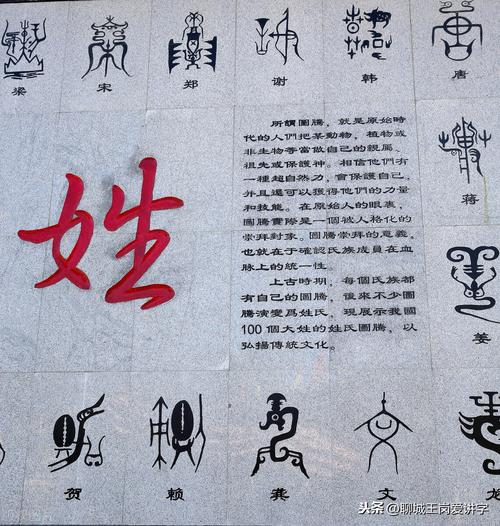 梁 宋 郑 谢 韩 唐
姓
所謂圖騰，就是原始時
代的人們把某動物，植物或
非生物等當做自己的親屬、
祖先或保護神。相信他們有
一種超自然力，會保護自己，
并且還可以獲得他們的力量
和技能。在原始人的眼裏，
圖騰實際是一個被人格化的
崇拜對象。圖騰崇拜的意義，
也就在于確認氏族成員在血
脉上的統一性。
上古時期，每個氏族都
有自己的圖騰，後來不少圖
騰演變爲姓氏，現展示我國
100個大姓的姓氏圖騰，以
弘揚傳統文化。
蔣
姜
贺 赖 龚 文
头条 @聊城王岗爱讲字